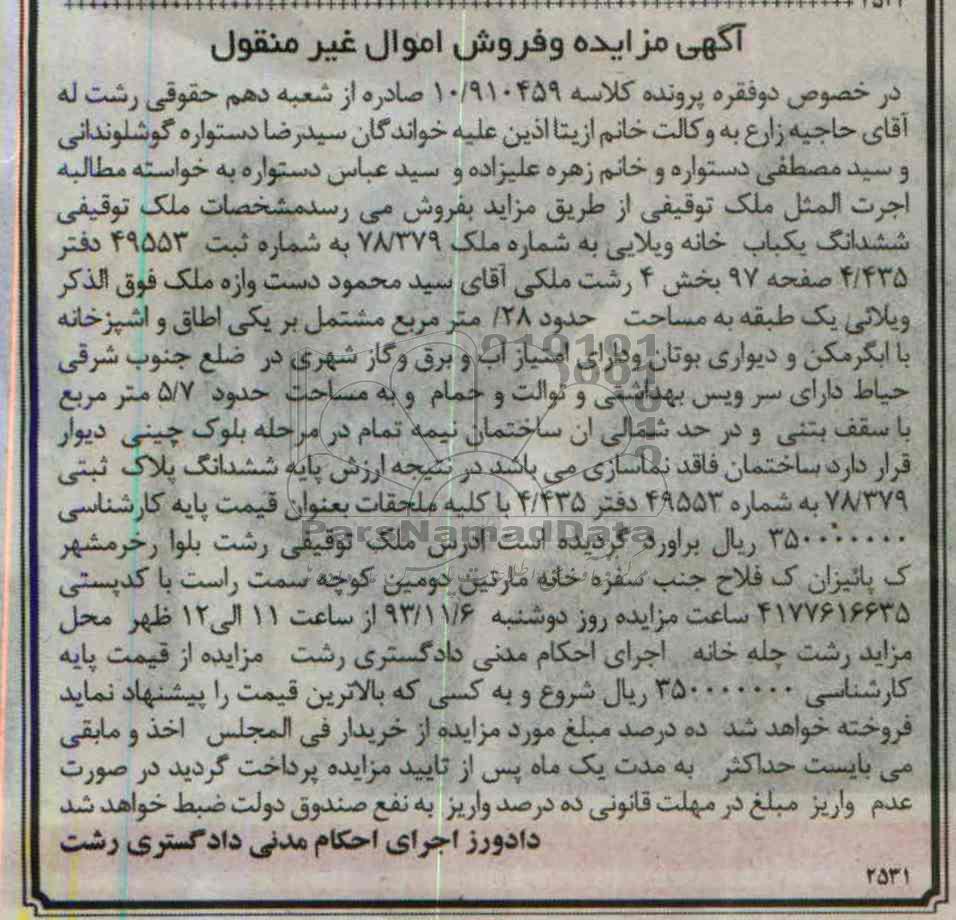 ۲۵۲۲
آگهی مزایده وفروش اموال غیر منقول
در خصوص دوفقره پرونده کلاسه ۱۰/۹۱۰۴۵۹ صادره از شعبه دهم حقوقی رشت له
آقای حاجیه زارع به وکالت خانم ازیتا اذین علیه خواندگان سیدرضا دستواره گوشلوندانی
و سید مصطفی دستواره و خانم زهره علیزاده و سید عباس دستواره به خواسته مطالبه
اجرت المثل ملک توقیفی از طریق مزاید بفروش می رسدمشخصات ملک توقیفی
ششدانگ یکباب خانه ویلایی به شماره ملک ۷۸/۳۷۹ به شماره ثبت ۴۹۵۵۳ دفتر
۴/۴۳۵ صفحه ۹۷ بخش ۴ رشت ملکی آقای سید محمود دست وازه ملک فوق الذکر
ویلائی یک طبقه به مساحت حدود ۲۸/ متر مربع مشتمل بر یکی اطاق و اشپزخانه
با ابگرمکن و دیواری بوتان ودارای امتیاز آب و برق وگاز شهری در ضلع جنوب شرقی
حیاط دارای سر ویس بهداشتی و توالت و حمام و به مساحت حدود ۵/۷ متر مربع
با سقف بتنی و در حد شمالی ان ساختمان نیمه تمام در مرحله بلوک چینی دیوار
قرار دارد ساختمان فاقد نماسازی می باشد در نتیجه ارزش پایه ششدانگ پلاک ثبتی
۷۸/۳۷۹ به شماره ۴۹۵۵۳ دفتر ۴/۴۳۵ با کلیه ملحقات بعنوان قیمت پایه کارشناسی
۳۵۰۰۰۰۰۰۰ ریال براورد گردیده است ادرس ملک توقیفی رشت بلوا رخرمشهر
ک پائیزان ک فلاح جنب سفره خانه مارتین دومین کوچه سمت راست با کدپستی
۴۱۷۷۶۱۶۶۳۵ ساعت مزایده روز دوشنبه ۹۳/۱۱/۶ از ساعت ۱۱ الی۱۲ ظهر محل
مزاید رشت چله خانه اجرای احکام مدنی دادگستری رشت مزایده از قیمت پایه
کارشناسی ۳۵۰۰۰۰۰۰۰ ریال شروع و به کسی که بالاترین قیمت را پیشنهاد نماید
فروخته خواهد شد ده درصد مبلغ مورد مزایده از خریدار فی المجلس اخذ و مابقی
می بایست حداکثر به مدت یک ماه پس از تایید مزایده پرداخت گردید در صورت
عدم واریز مبلغ در مهلت قانونی ده درصد واریز به نفع صندوق دولت ضبط خواهد شد
دادورز اجرای احکام مدنی دادگستری رشت
۲۵۳۱
ParsNamadData